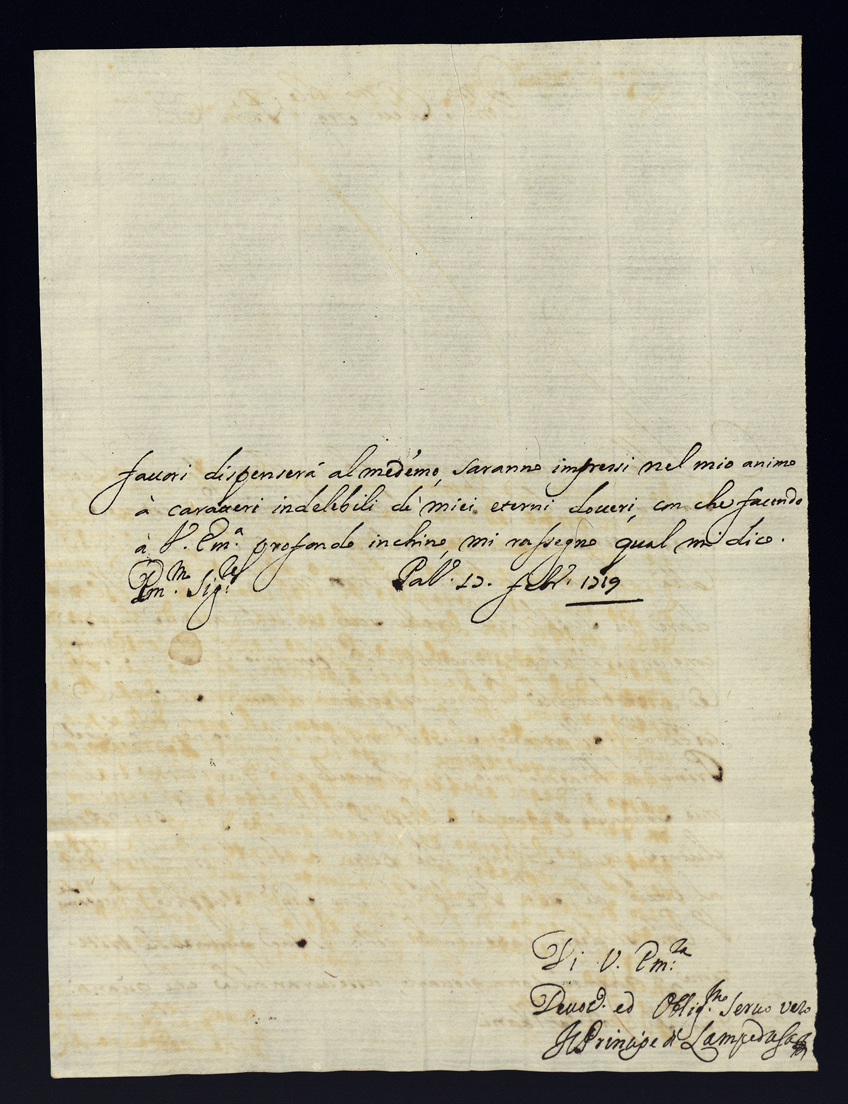 fauori dispenserà al medémo, saranno impressi nel mio animo
à caratteri indelebili de' miei eterni doueri, con che facendo
à V. Em.ª profondo inchino, mi rassegno qual mi dico.
Em.mo Sig.re Pal.º 17. Febr.º 1719
Di V. Em.za
Deuot.º ed Oblig.mo Seruo vero
Il Principe di Lampedusa